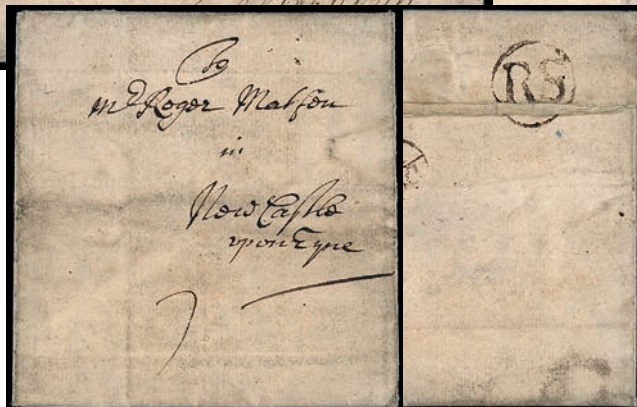 To
Mr Roger Matfen
in
New Castle
vpon Tyne
RS